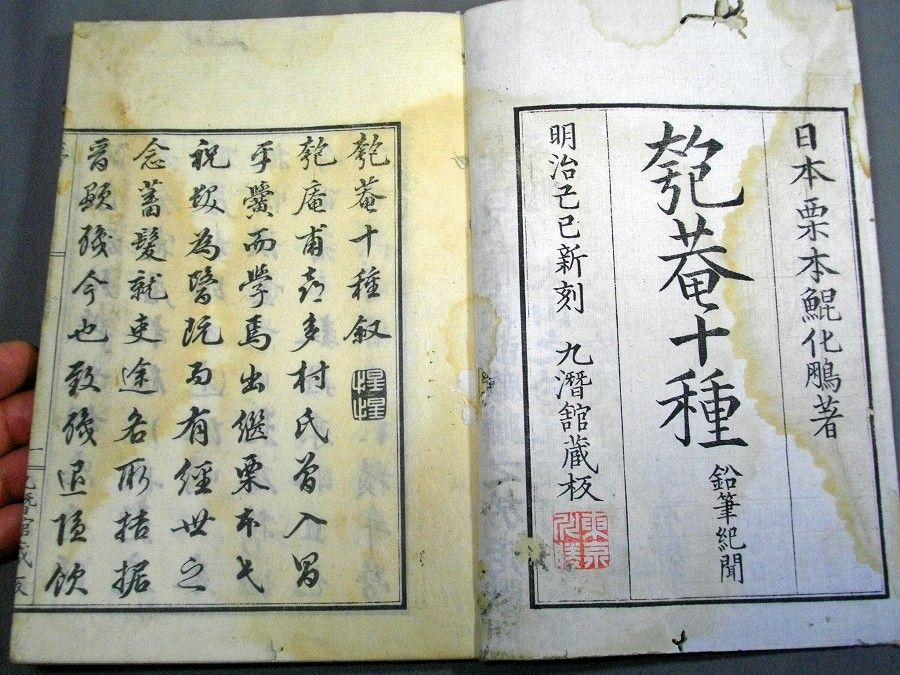 日本栗本鯤化鵬著
匏菴十種
鉛筆紀聞
明治己巳新刻 九潛舘蔵板
匏菴十種叙
惺惺
匏庵甫喜多村氏曽入昌
平黌而學焉出継栗本氏
祝髮為醫既而有経世之
念蓄髮就吏途各所拮据
晋顕職今也致職退隠飲